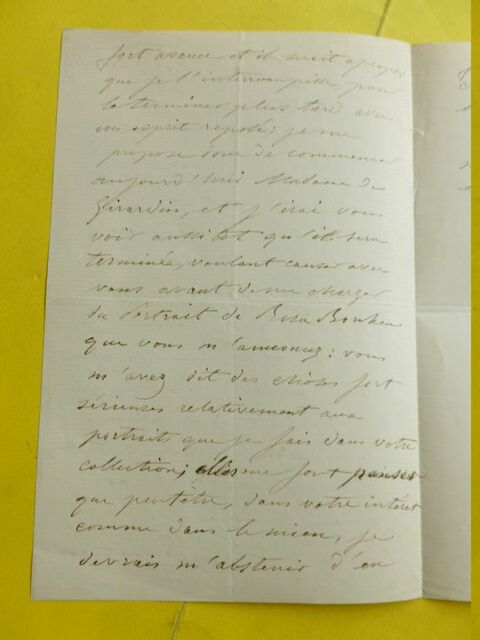 fort avancé et il serait à propos
que je l'interrompisse pour
le terminer plus tard avec
un esprit reposé; je me
propose donc de commencer
aujourd'hui Madame de
Girardin, et j'irai vous
voir aussitôt qu'elle sera
terminée, voulant causer avec
vous avant de me charger
du Portrait de Rosa Bonheur
que vous m'annoncez: vous
m'avez dit des choses fort
sérieuses relativement aux
portraits que je fais dans votre
collection; elles me font penser
que peutetre, dans votre intérêt
comme dans le mien, je
devrais m'abstenir d'en